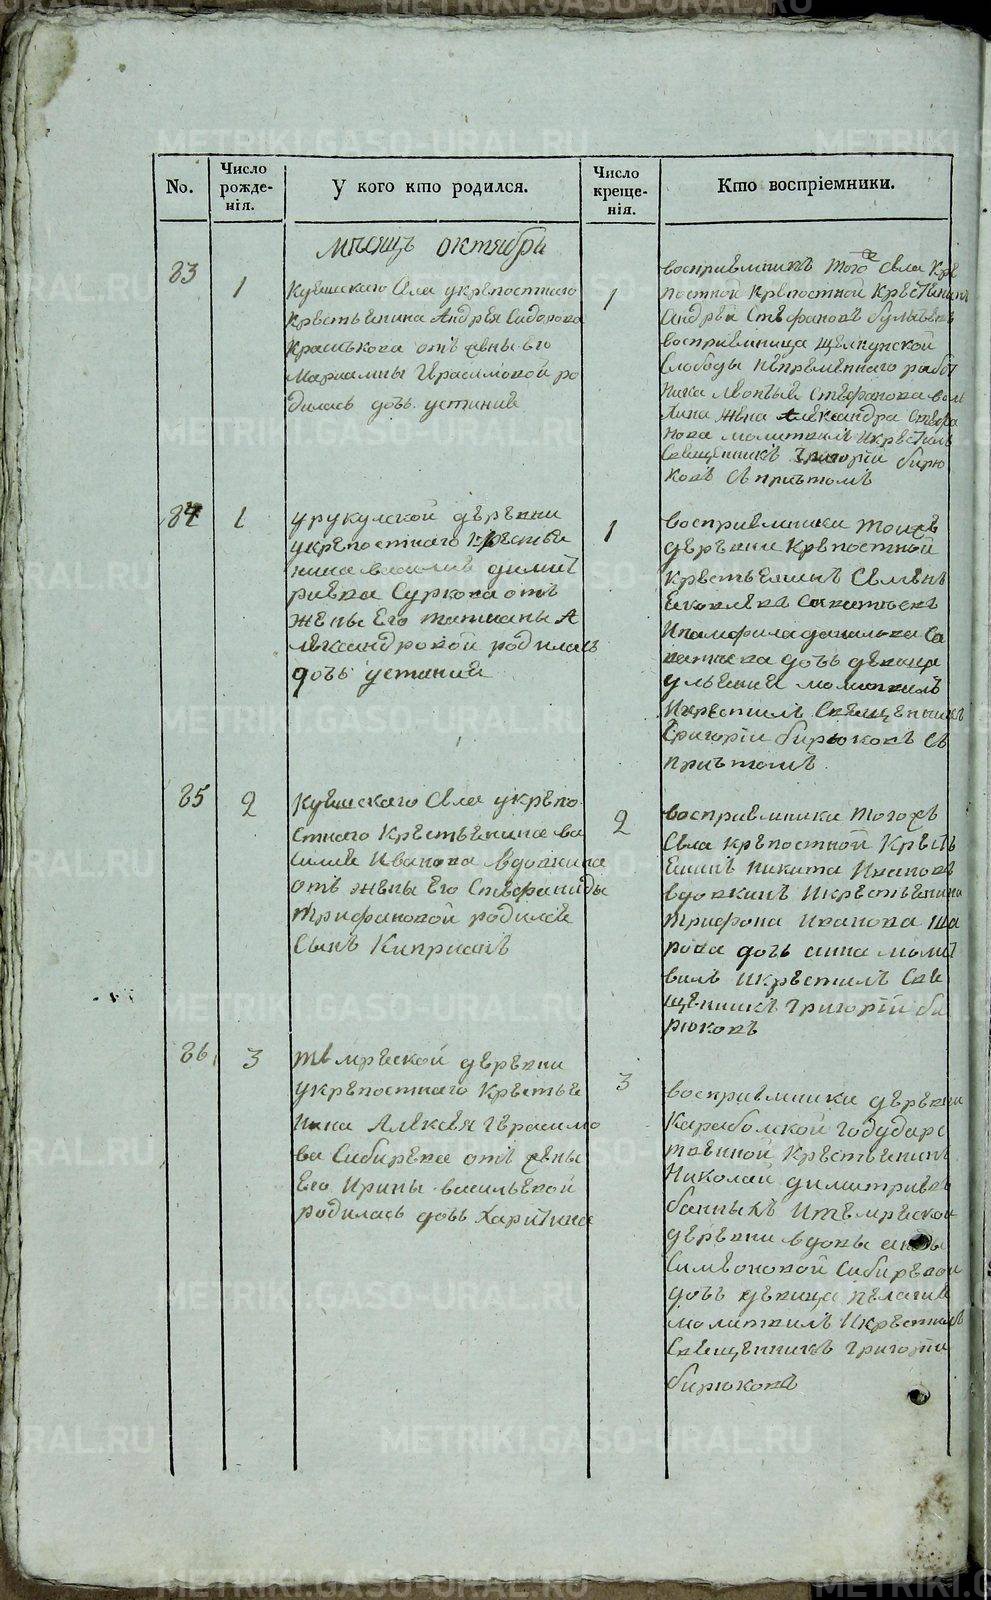 No.
Число рожде-нія.
У кого кто родился.
Число креще-нія.
Кто воспріемники.
Мѣсяцъ октября
83
1
Куяшскаго Села укрѣпостнаго
крѣстьянина Андрѣя Сидорова
отъ жены Его
Мариамны Герасимовой ро
дилась дочь устиния
1
восприемникъ того Села Крѣ
постной Крѣпостной Крѣстьянинъ
Андрѣй Стѣфановъ
восприемница щелкунской
Слободы непремѣннаго работ
ника Леонтья Стѣфанова
жена Александра Стѣфа
нова молитвилъ икрѣстилъ
Священникъ Григорій бирю
ковъ Съ притомъ
84
1
урукулской дѣрѣвни
укрѣпостнаго крѣстья
нина василия димит
риева Суркова отъ
жены Его татианы А
лѣксандровой родилась
дочь устиния
1
восприемники тоияже
дѣрѣвни Крѣпостной
крѣстьянинъ Семѣнъ
Яковлѣвъ
Ипамфила данилова Са
дочь дѣвица
улияния молитвилъ
Икрестилъ Священникъ
Григорій бирюковъ Съ
притомъ
85
2
Куяшскаго Села укрѣпо
стнаго Крѣстьянина ва
силия Иванова вдовкина
отъ жены Его Стефаниды
трифановой родился
Сынъ Киприанъ
2
восприемники тогожъ
Села крѣпостной Крѣсть
янинъ никита Ивановъ
вдовкинъ Икрѣстьянина
трифона иванова ша
рова дочь анна молит
вилъ икрѣстилъ Свя
щенникъ Григорій би
рюковъ
86
3
тѣмрѣской дѣрѣвни
укрѣпостнаго Крѣстья
нина Алѣксея Герасимо
ва Сибирѣва отъ жены
Его Ирины васильевой
родилась дочь Харитина
3
восприемники дѣрѣвни
Караболской Годударс
твѣнной Крѣстьянинъ
Николай димитриевъ
банныхъ Итѣмрѣской
дѣрѣвни вдовы
Симѣоновой Сибирѣвой
дочь дѣвица пѣлагия
молитвилъ Икрѣстилъ
Священникъ Григорій
бирюковъ
METRIKI.GASO-URAL.RU